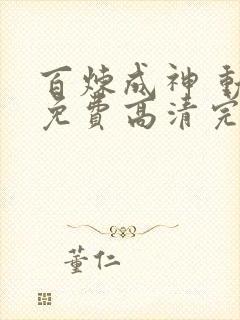 百炼成神 動
免費高清完
董仁